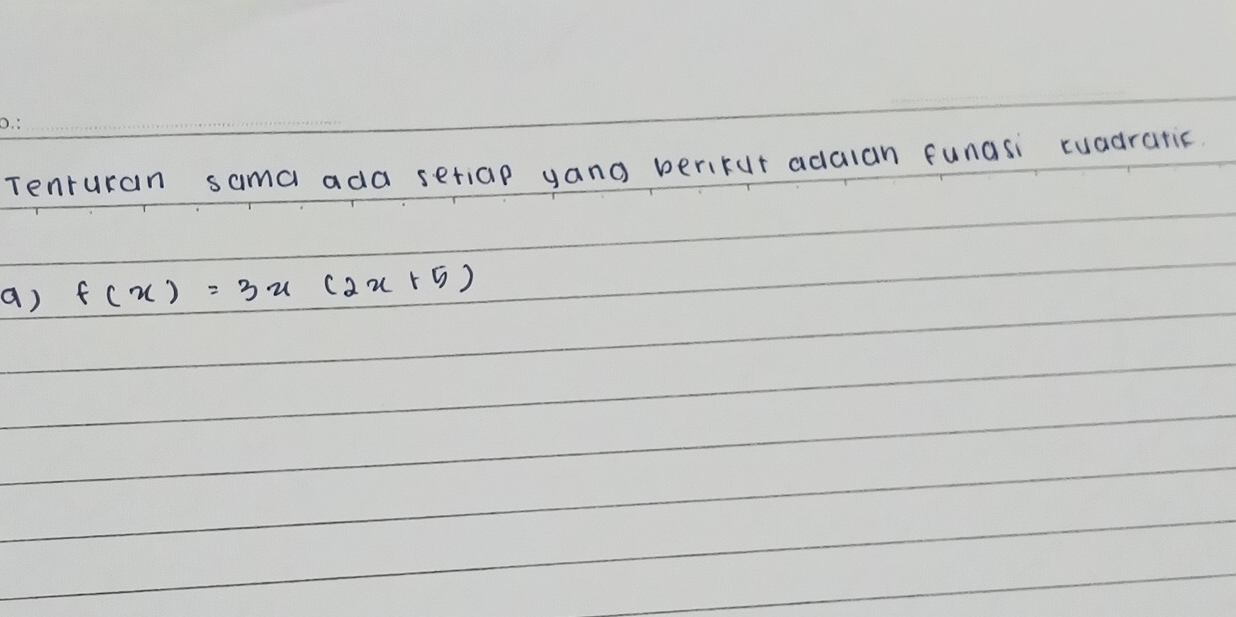 o.:
Tentukan sama ada setiap yang berikut adalah fungsi kuadratik.
a) f(x) = 3x (2x + 5)